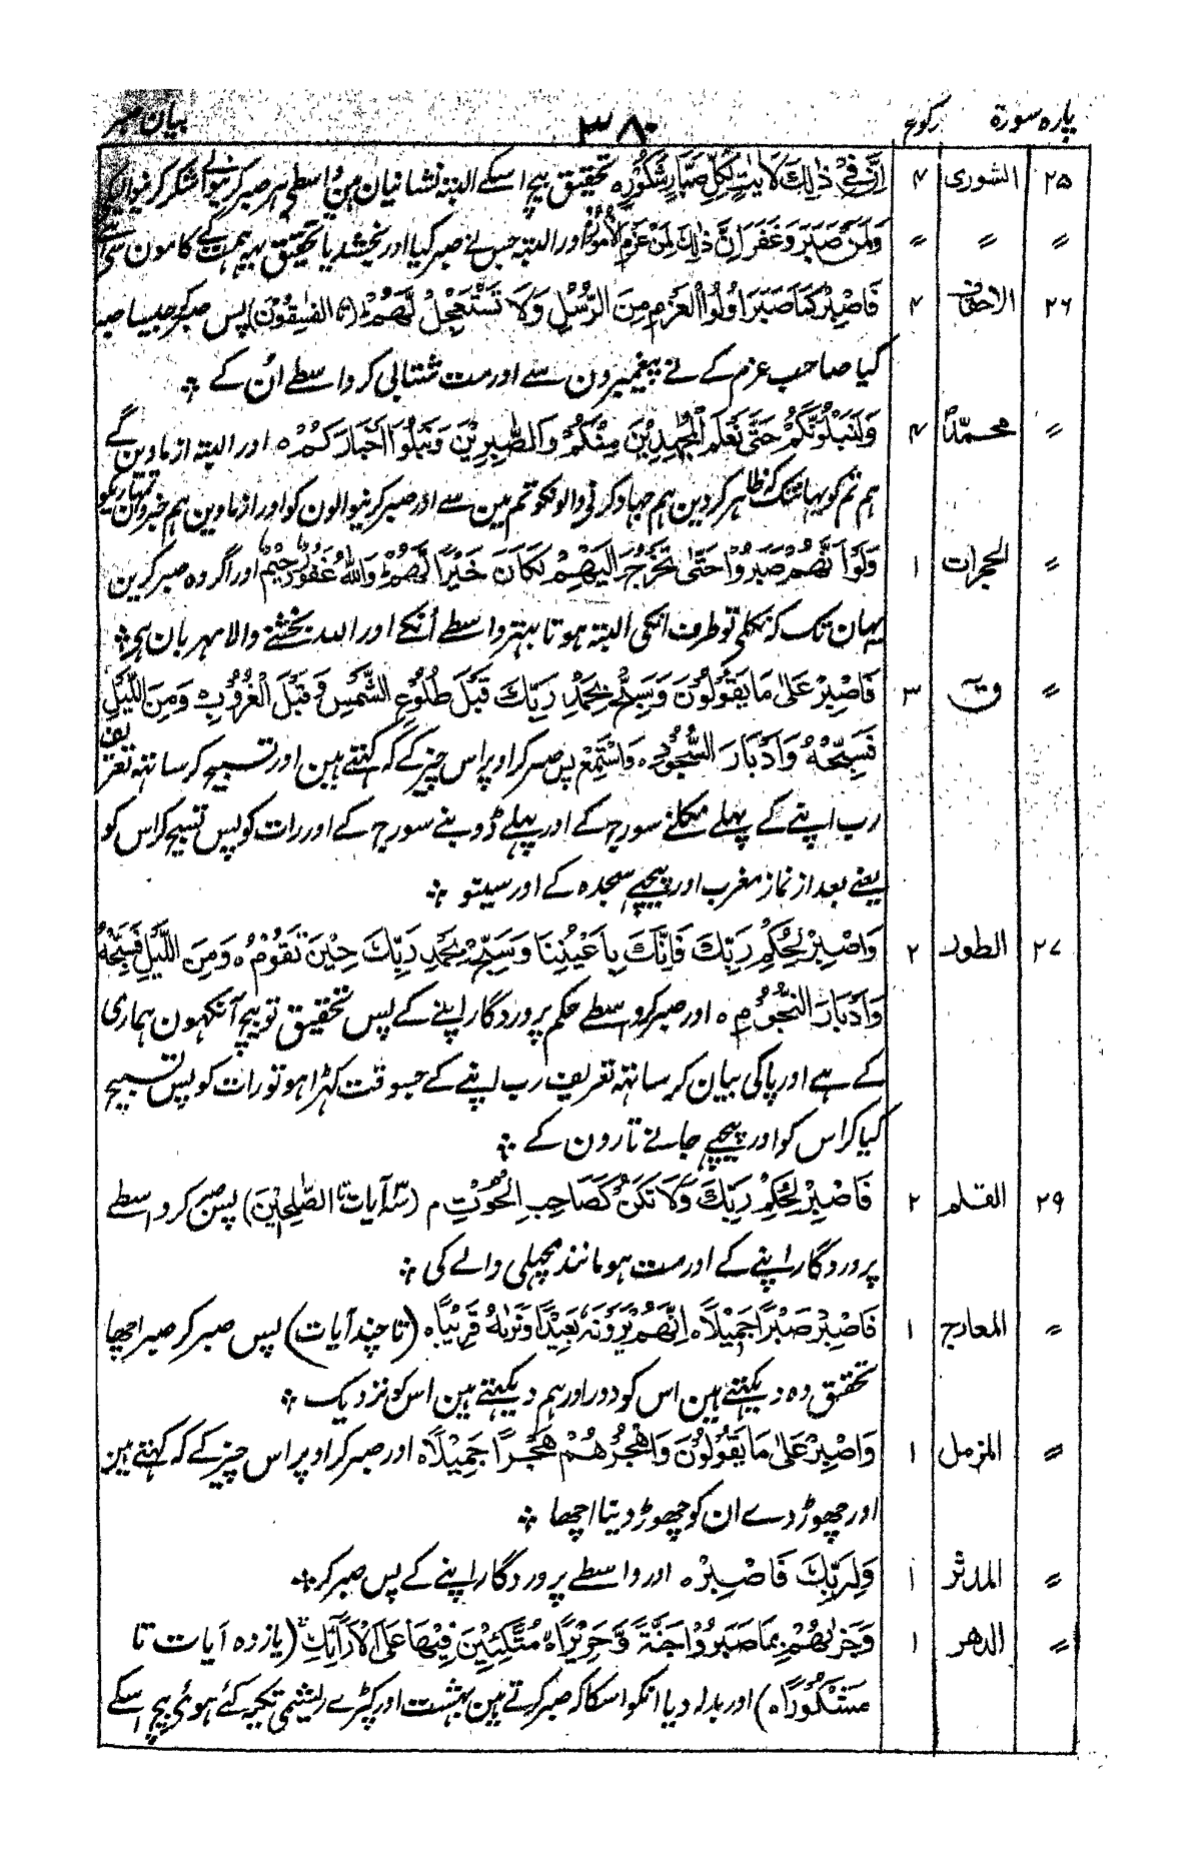 پارہ سورۃ رکوع ۳۸۰ بیان صبر
۲۵ الشوری ۴ اِنَّ فِیْ ذٰلِكَ لَاٰیٰتٍ لِّكُلِّ صَبَّارٍ شَكُوْرٍ ہ تحقیق بیچ اسکے البتہ نشانیان ہین واسطے ہر صبر کرنیوالے شکر کرنیوالیکے
〃 〃 〃 وَلَمَنْ صَبَرَ وَغَفَرَ اِنَّ ذٰلِكَ لَمِنْ عَزْمِ الْاُمُوْرِ اور البتہ جس نے صبر کیا اور بخشدیا تحقیق یہ ہمت کے کامون سے ہے
۲۶ الاحقاف ۴ فَاصْبِرْ كَمَا صَبَرَ اُولُوا الْعَزْمِ مِنَ الرُّسُلِ وَلَا تَسْتَعْجِلْ لَّهُمْ (تا الفٰسِقُوْنَ) پس صبر کر جیسا صبر
کیا صاحب عزم کے نے پیغمبرون سے اور مت شتابی کر واسطے اُن کے ؞
〃 محمدؐ ۴ وَلَنَبْلُوَنَّكُمْ حَتّٰى نَعْلَمَ الْمُجٰهِدِیْنَ مِنْكُمْ وَالصّٰبِرِیْنَ وَنَبْلُوَا اَخْبَارَكُمْ ہ اور البتہ ازماوین گے
ہم تم کو یہانتک کہ ظاہر کردین ہم جہاد کرنیوالونکو تم مین سے اور صبر کرنیوالون کو اور ازماوین ہم خبرون تمہاریکو
〃 الحجرات ۱ وَلَوْ اَنَّهُمْ صَبَرُوْا حَتّٰى تَخْرُجَ اِلَیْهِمْ لَكَانَ خَیْرًا لَّهُمْ وَاللّٰهُ غَفُوْرٌ رَّحِیْمٌ اور اگر وہ صبر کرین
یہان تک کہ نکلی تو طرف انکی البتہ ہوتا بہتر واسطے اُنکے اور اللہ بخشنے والا مہربان ہے ؞
〃 قٓ ۳ فَاصْبِرْ عَلٰى مَا یَقُوْلُوْنَ وَسَبِّحْ بِحَمْدِ رَبِّكَ قَبْلَ طُلُوْعِ الشَّمْسِ وَقَبْلَ الْغُرُوْبِ ہ وَمِنَ اللَّیْلِ
فَسَبِّحْهُ وَاَدْبَارَ السُّجُوْدِ ہ وَاسْتَمِعْ پس صبر کر اوپر اس چیز کے کہ کہتے ہین اور تسبیح کر ساتھ تعریف
رب اپنے کے پہلے نکلنے سورج کے اور پہلے ڈوبنے سورج کے اور رات کو پس تسبیح کر اس کو
یعنے بعد از نماز مغرب اور پیچھے سجدہ کے اور سیتو ؞
۲۷ الطور ۲ وَاصْبِرْ لِحُكْمِ رَبِّكَ فَاِنَّكَ بِاَعْیُنِنَا وَسَبِّحْ بِحَمْدِ رَبِّكَ حِیْنَ تَقُوْمُ ہ وَمِنَ اللَّیْلِ فَسَبِّحْهُ
وَاِدْبَارَ النُّجُوْمِ ہ اور صبر کر واسطے حکم پروردگار اپنے کے پس تحقیق تو بیچ آنکھون ہماری
کے ہے اور پاکی بیان کر ساتھ تعریف رب اپنے کے جسوقت کھڑا ہو تو رات کو پس تسبیح
کیا کر اس کو اور پیچھے جانے تارون کے ؞
۲۹ القلم ۲ فَاصْبِرْ لِحُكْمِ رَبِّكَ وَلَا تَكُنْ كَصَاحِبِ الْحُوْتِ م (آیات تا الصّٰلِحِیْنَ) پس صبر کر واسطے
پروردگار اپنے کے اور مت ہو مانند مچھلی والے کی ؞
〃 المعارج ۱ فَاصْبِرْ صَبْرًا جَمِیْلًا ہ اِنَّهُمْ یَرَوْنَهٗ بَعِیْدًا وَّنَرٰىهُ قَرِیْبًا ہ (تا چند آیات) پس صبر کر صبر اچھا
تحقیق وہ دیکھتے ہین اس کو دور اور ہم دیکھتے ہین اس کو نزدیک ؞
〃 المزمل ۱ وَاصْبِرْ عَلٰى مَا یَقُوْلُوْنَ وَاهْجُرْهُمْ هَجْرًا جَمِیْلًا ہ اور صبر کر اوپر اس چیز کے کہ کہتے ہین
اور چھوڑ دے ان کو چھوڑ دینا اچھا ؞
〃 المدثر ۱ وَلِرَبِّكَ فَاصْبِرْ ہ اور واسطے پروردگار اپنے کے پس صبر کر ؞
〃 الدهر ۱ وَجَزٰىهُمْ بِمَا صَبَرُوْا جَنَّةً وَّحَرِیْرًا ہ مُّتَّكِئِیْنَ فِیْهَا عَلَى الْاَرَآئِكِ (یازدہ آیات تا
مَّشْكُوْرًا ہ) اور بدلہ دیا انکو اسکا کہ صبر کرتے ہین بہشت اور کپڑے ریشمی تکیہ کئے ہوئے بیچ اسکے